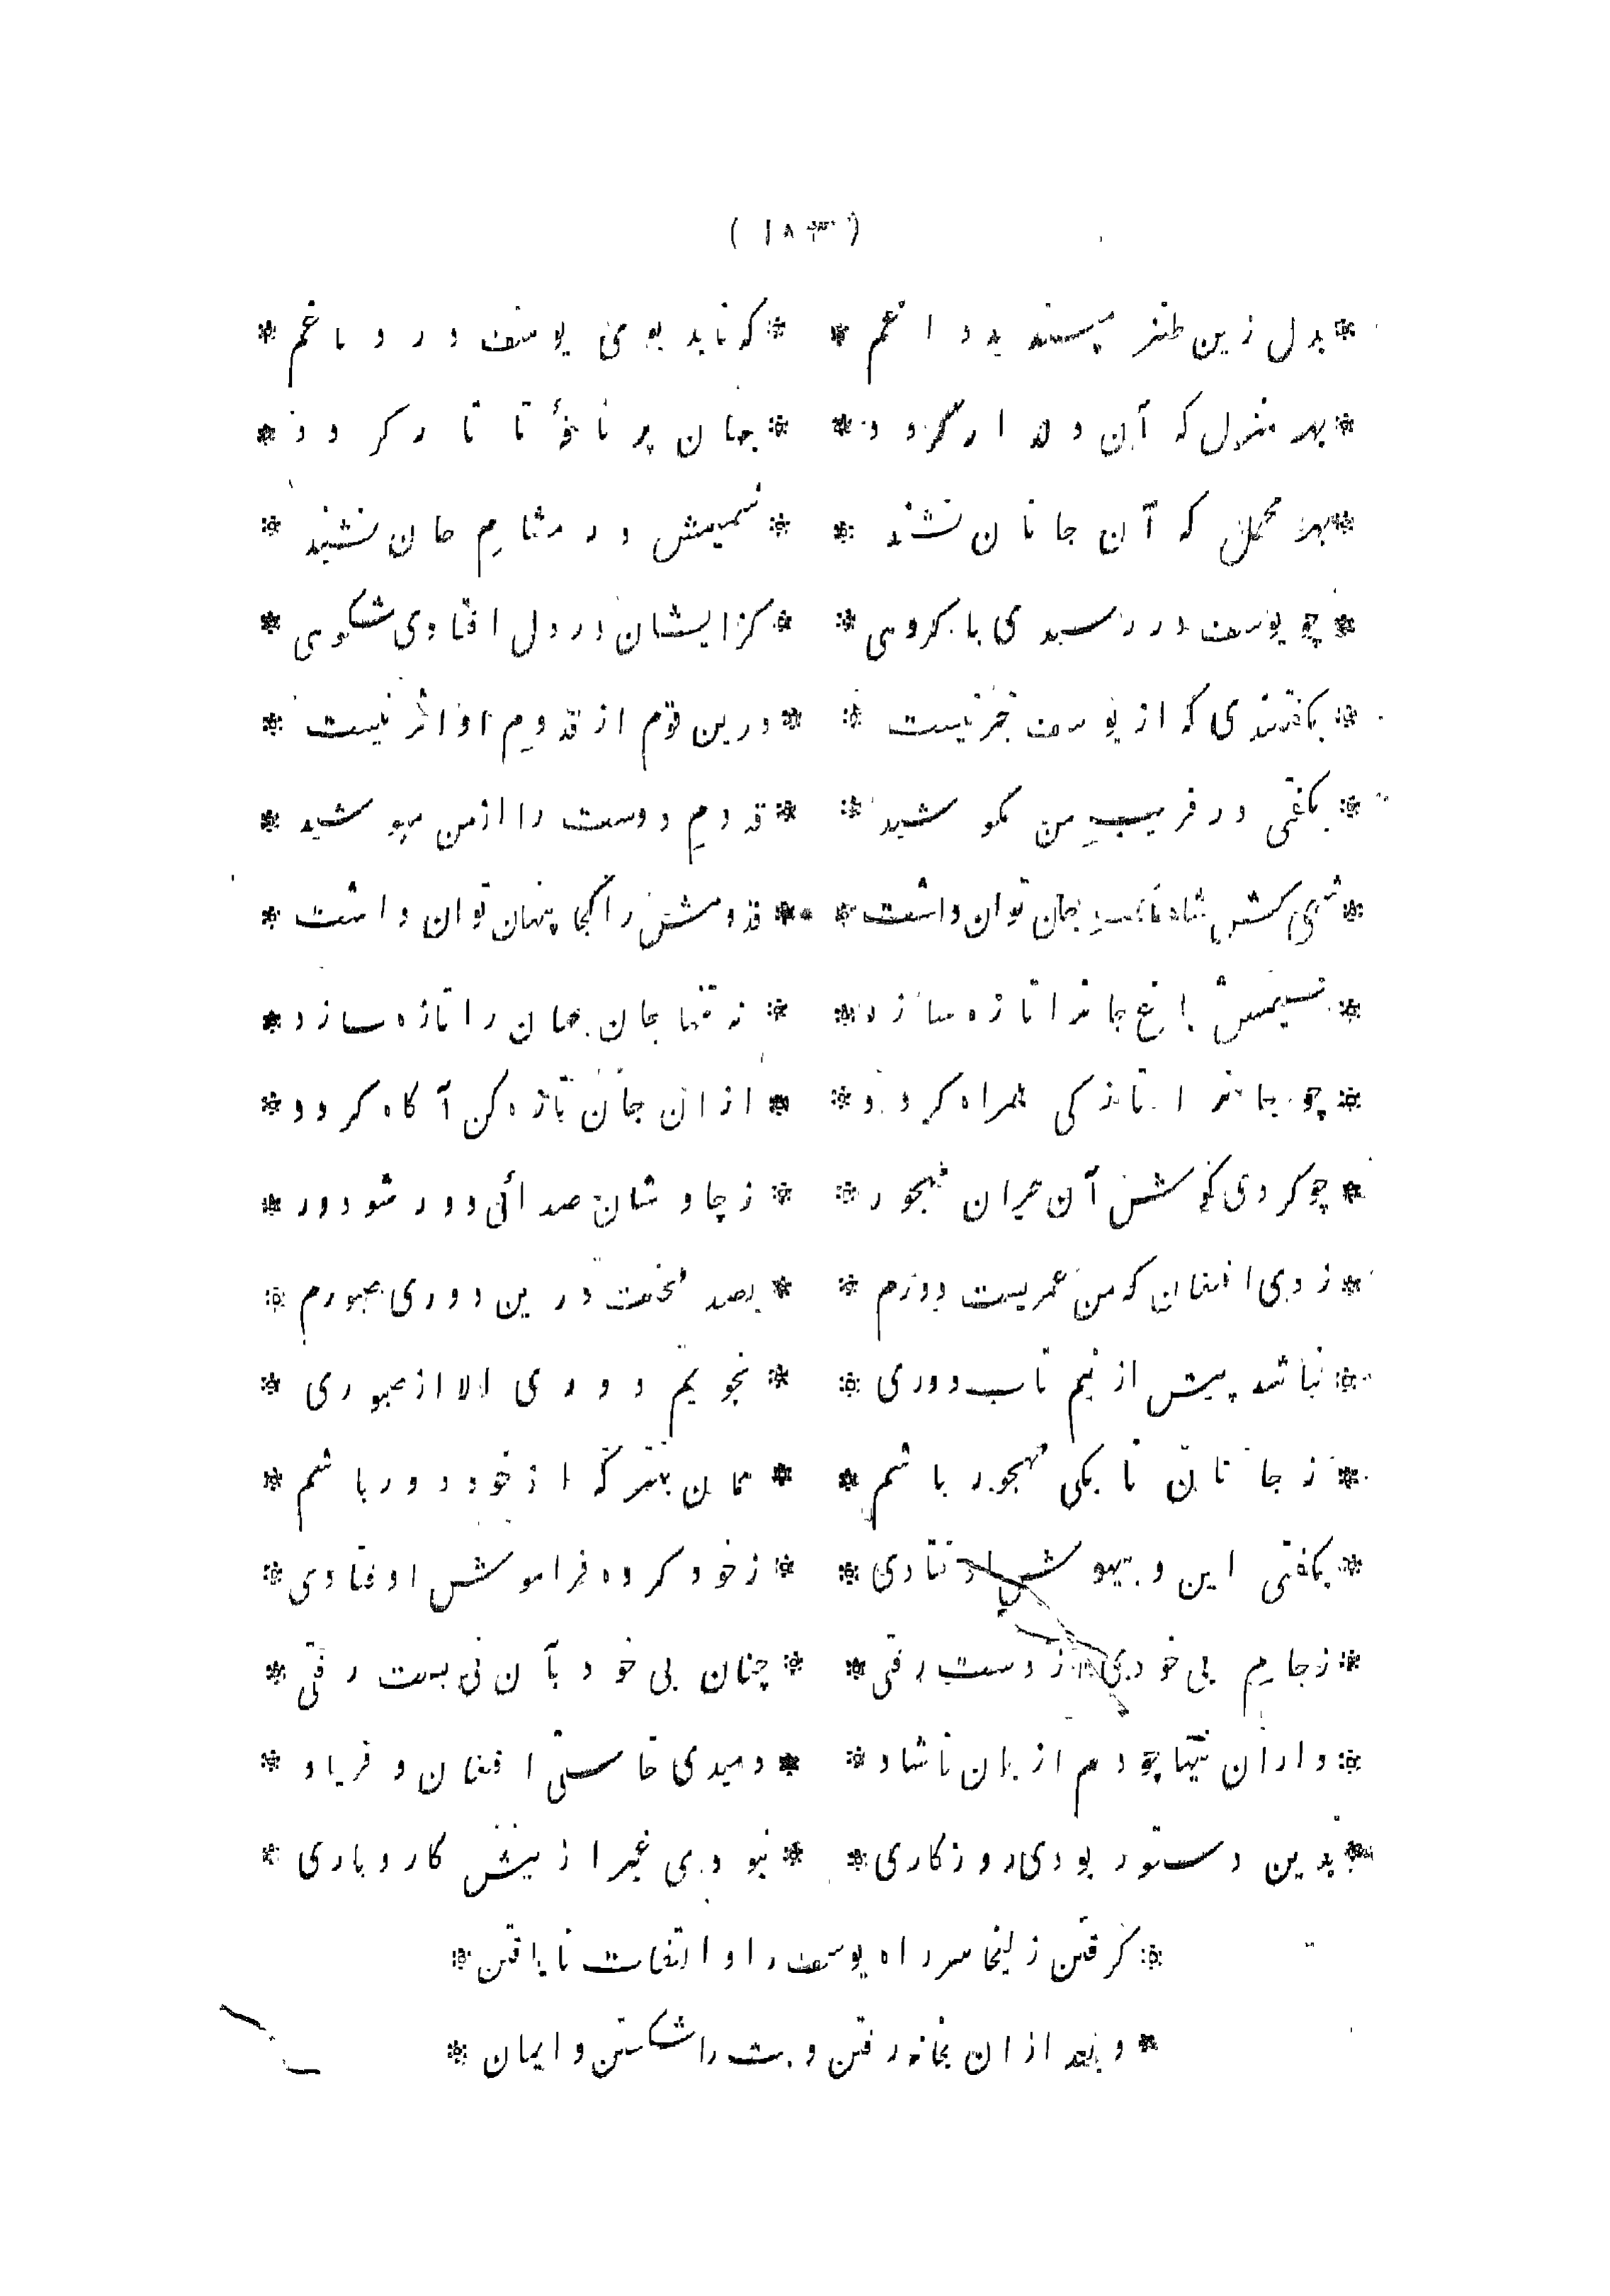 ( ۱۸۳ )
* بدل زین طنز مپسندید داغم * * که ناید بوی یوسف در دماغم *
* بهر منزل که آن دلدار گردد * * جهان پر نافهٔ تاتار گردد *
* بهر محمل که آن جانان نشیند * * شمیمش در مشامِ جان نشیند *
* چو یوسف در رسیدی با کروهی * * کزایشان در دل افتادی شکوهی *
* بکفتندی که از یوسف خبر نیست * * درین قوم از قدومِ او اثر نیست *
* بکفتی در فریبِ من مکوشید * * قدومِ دوست را از من مپوشید *
* شهی کش شاه جان توان داشت * * قدومش را کجا پنهان توان داشت *
* نسیمش باغ جانرا تازه سازد * * نه تنها جان جهان را تازه سازد *
* چو جانرا تازکی همراه کردد * * ازان جان تازه کن آکاه کردد *
* چو کردی کوش آن حیران مهجور * * ز چاوشان صدائی دور شو دور *
* زدی افغان که من عمریست دورم * * بصد محنت درین دوری صبورم *
* نباشد پیش ازینم تاب دوری * * نجویم دوری الا از صبوری *
* ز جانان تا بکی مهجور باشم * * همان بهتر که از خود دور باشم *
* بکفتی این و بیهوش اوفتادی * * ز خود کرده فراموش اوفتادی *
* ز جامِ بی خودی از دست رفتی * * چنان بی خود بآن نی بست رفتی *
* دران نیها چو دم از جان ناشاد * * دمیدی خاستی افغان و فریاد *
* بدین دستور بودی روزکاری * * نبودی غیر ازینش کار و باری *
* کرفتن زلیخا سر راه یوسف را و التفات نایافتن *
* و بعد ازان بخانه رفتن و بت را شکستن و ایمان *